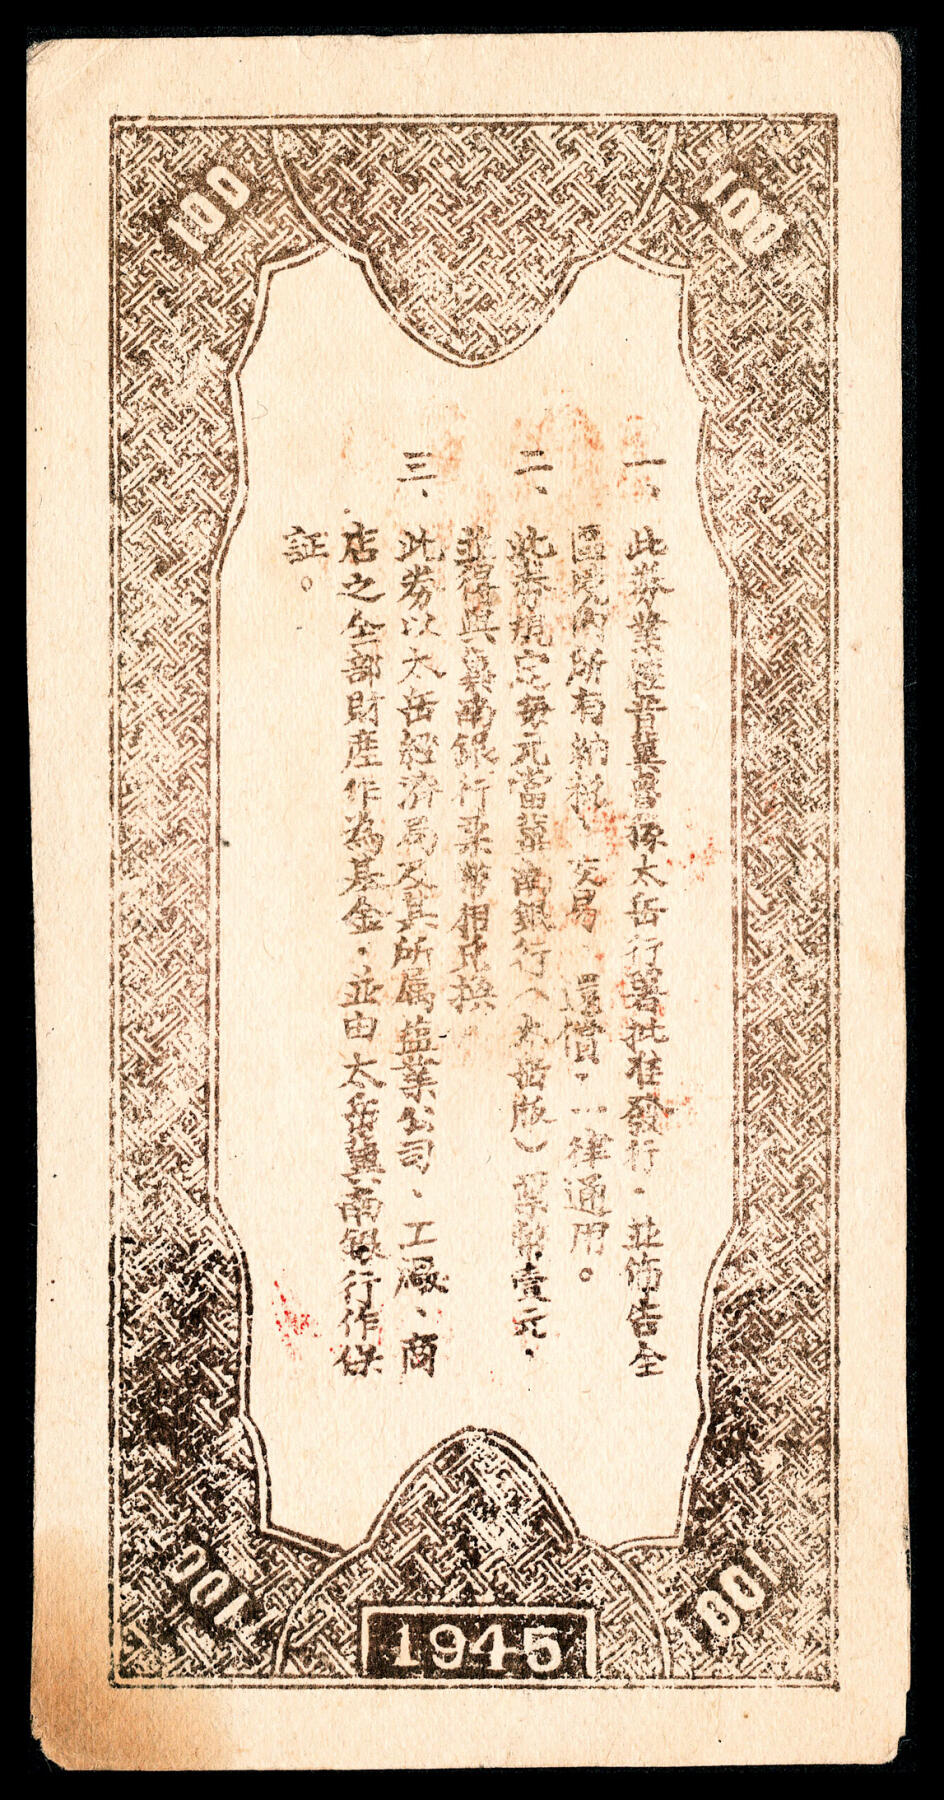 100
100
一、此券業經晋冀魯豫太岳行署批准發行．並佈告全
區境内所有納稅、交易、還債．一律通用。
二、此券規定每元當冀南銀行（太岳版）票幣壹元．
並得與冀南銀行票幣相兌換
三、此券以太岳經濟局及其所属塩業公司、工廠、商
店之全部財產作為基金．並由太岳冀南銀行作保
証。
100
100
1945